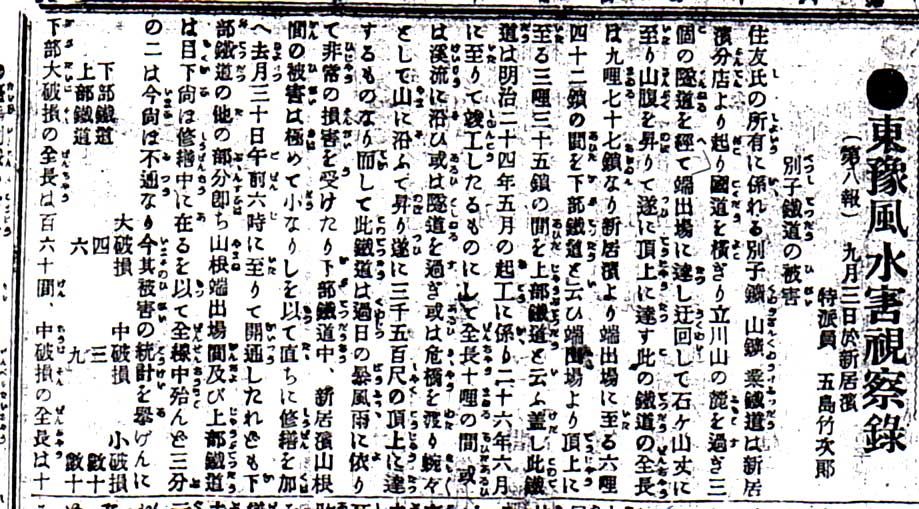 ●東豫風水害視察錄
(第八報) 九月三日於新居濱
特派員 五島竹次郎
別子鐵道の被害
住友氏の所有に係れる別子鐵山鑛業鐵道は新居
濱分店より起り國道を横ぎり立川山の麓を過ぎ三
個の隧道を經て端出場に達し迂回して石ケ山丈に
至り山腹を昇りて遂に頂上に達す此の鐵道の全長
は九哩七十七鎖なり新居濱より端出場に至る六哩
四十二鎖の間を下部鐵道と云ひ端出場より頂上に
至る三哩三十五鎖の間を上部鐵道と云ふ蓋し此鐵
道は明治二十四年五月の起工に係り二十六年六月
に至りて竣工したるものにして全長十哩の間、或
は溪流に沿ひ或は隧道を過ぎ或は危橋を渡り蜿々
として山に沿ふて昇り遂に三千五百尺の頂上に達
するものなり而して此鐵道は過日の暴風雨に依り
て非常の損害を受けたり下部鐵道中、新居濱山根
間の被害は極めて小なりしを以て直ちに修繕を加
へ去月三十日午前六時に至りて開通したれども下
部鐵道の他の部分即ち山根端出場間及び上部鐵道
は目下尚は修繕中に在るを以て全線中殆んど三分
の二は今尚は不通なり今其被害の統計を擧げんに
大破損 中破損 小破損
下部鐵道 四 三 數十
上部鐵道 六 九 數十
下部大破損の全長は百六十間、中破損の全長は十